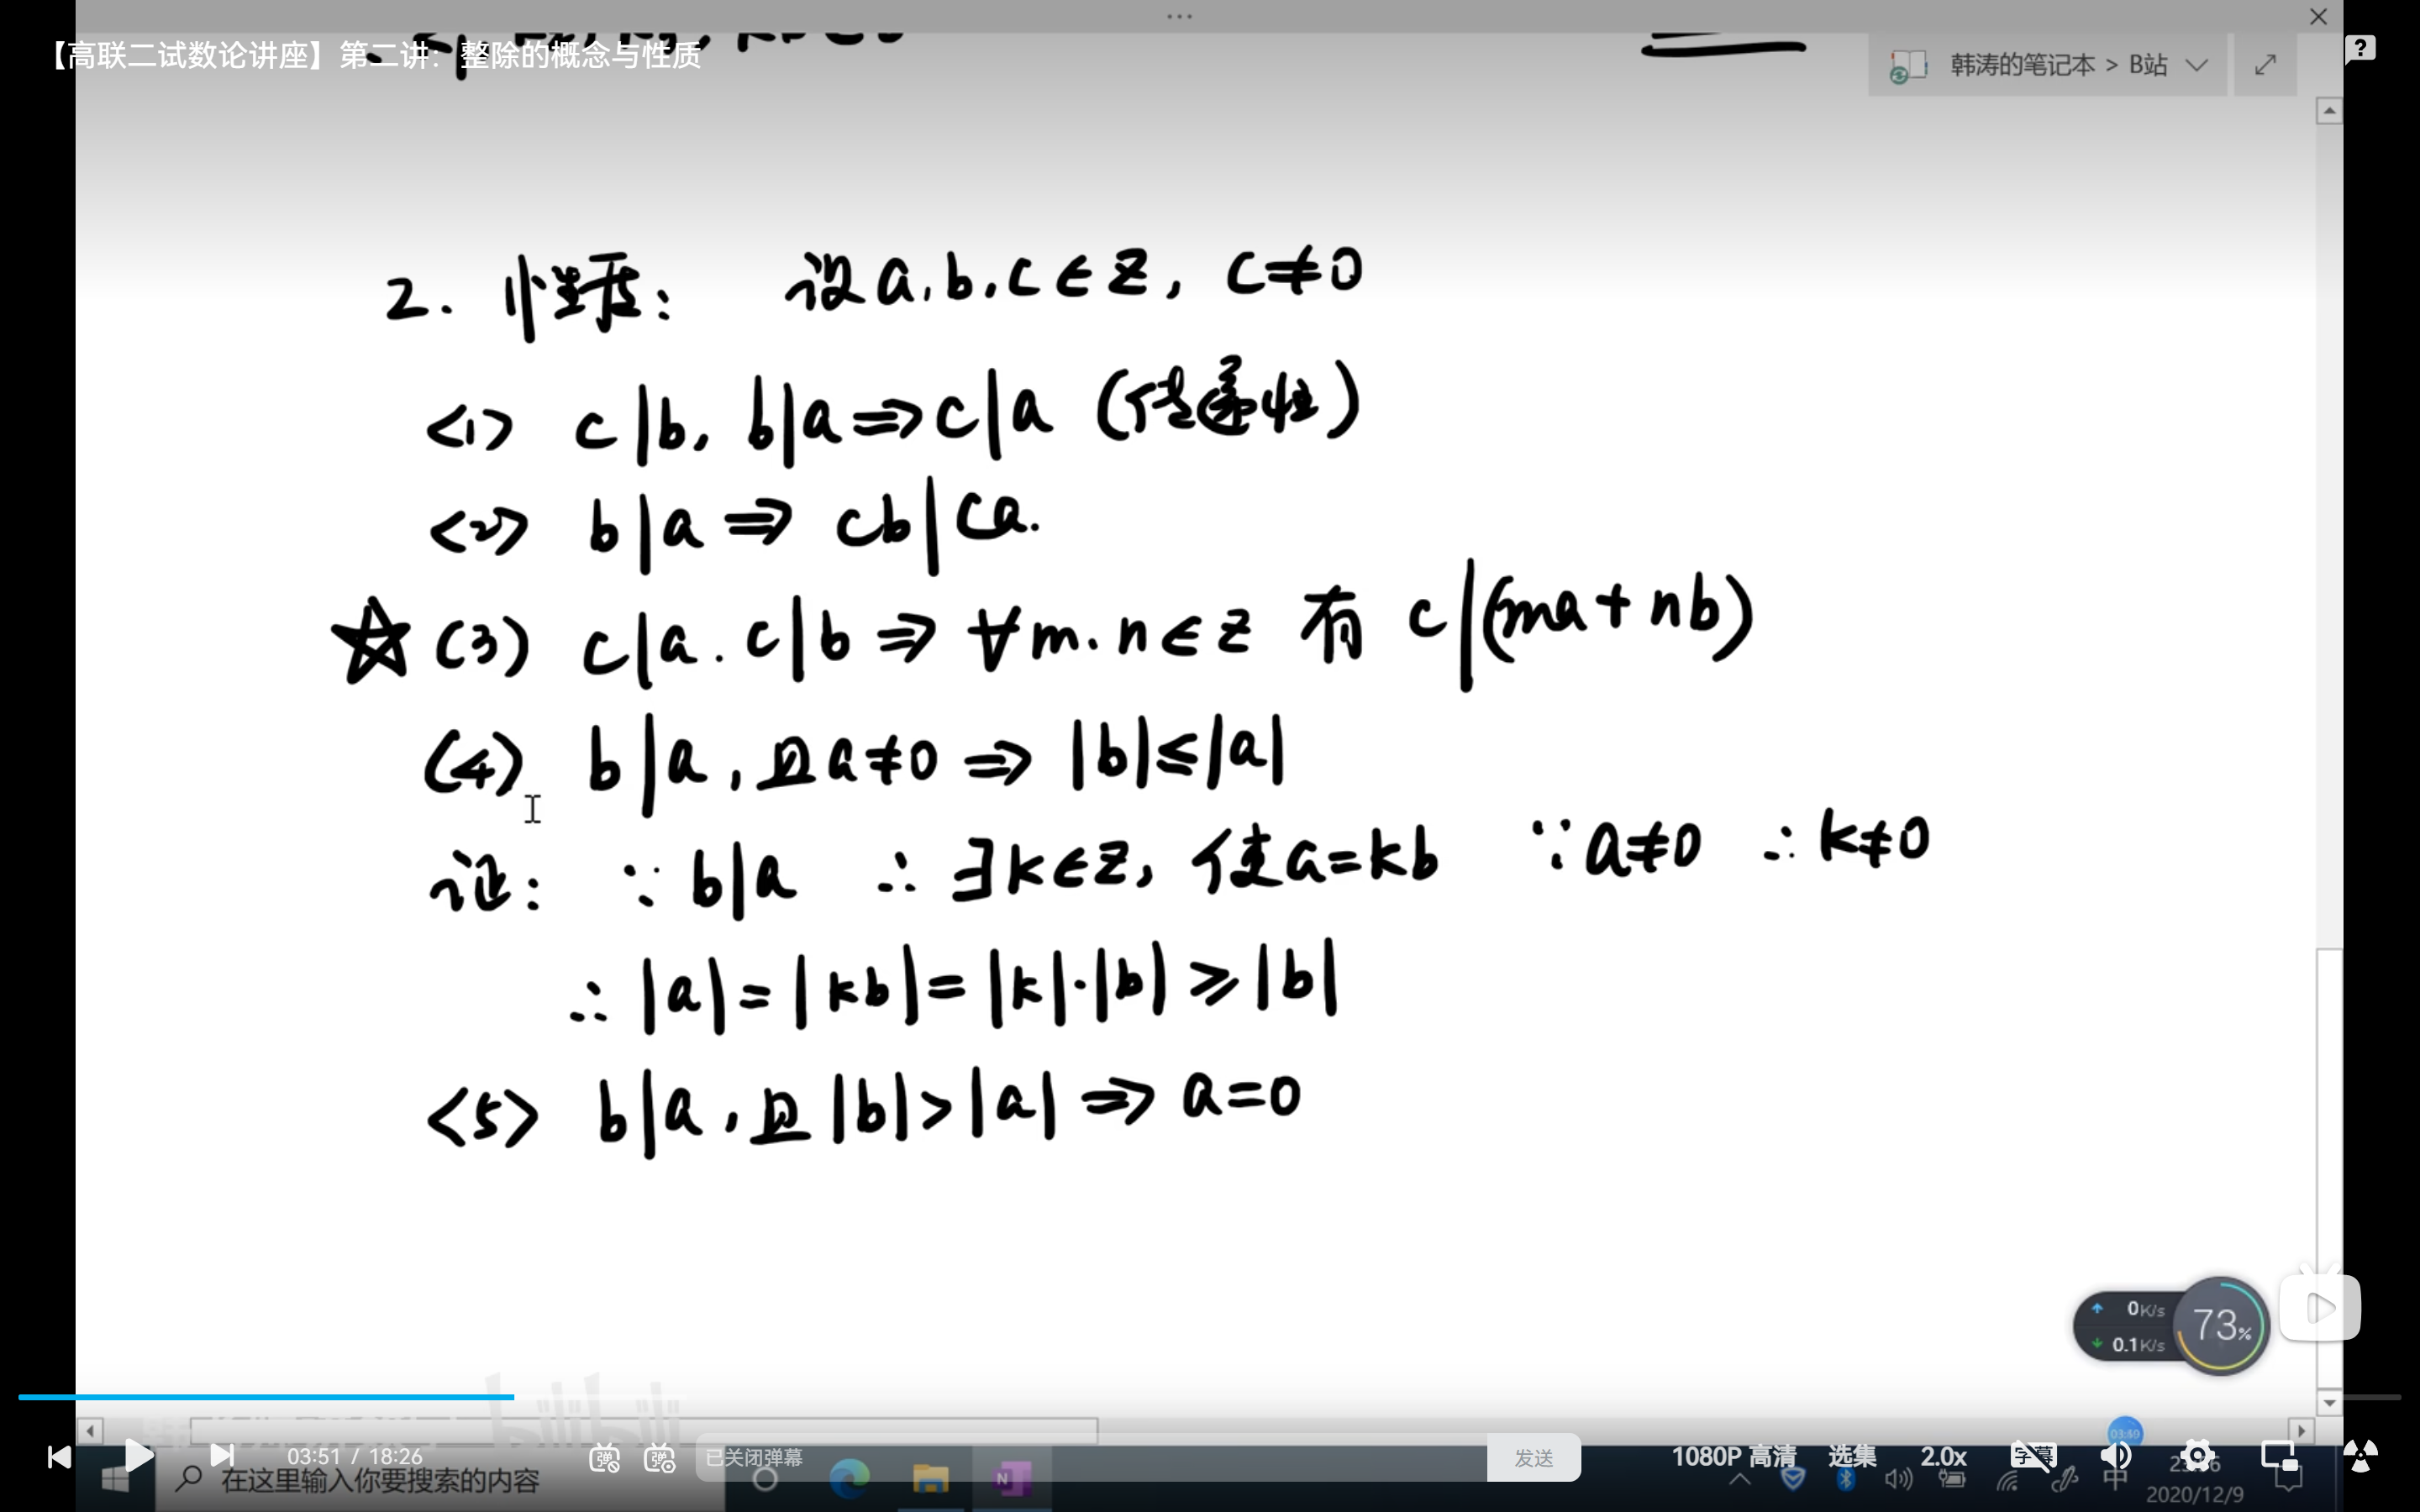 【高联二试数论讲座】第二讲：整除的概念与性质
韩涛的笔记本 > B站
2. 性质： 设a,b,c∈Z, c≠0
<1> c|b, b|a⇒c|a (传递性)
<2> b|a⇒ cb|ca.
☆(3) c|a. c|b ⇒ ∀m.n∈Z 有 c|(ma+nb)
(4) b|a,且a≠0 ⇒ |b|≤|a|
证： ∵ b|a ∴ ∃k∈Z, 使a=kb ∵a≠0 ∴k≠0
∴ |a|=|kb|=|k|·|b|≥|b|
<5> b|a,且|b|>|a| ⇒ a=0
0K/s
0.1K/s
73%
bilibili
03:50
03:51 / 18:26
已关闭弹幕
发送
1080P 高清
选集
2.0x
字幕
在这里输入你要搜索的内容
中
2020/12/9